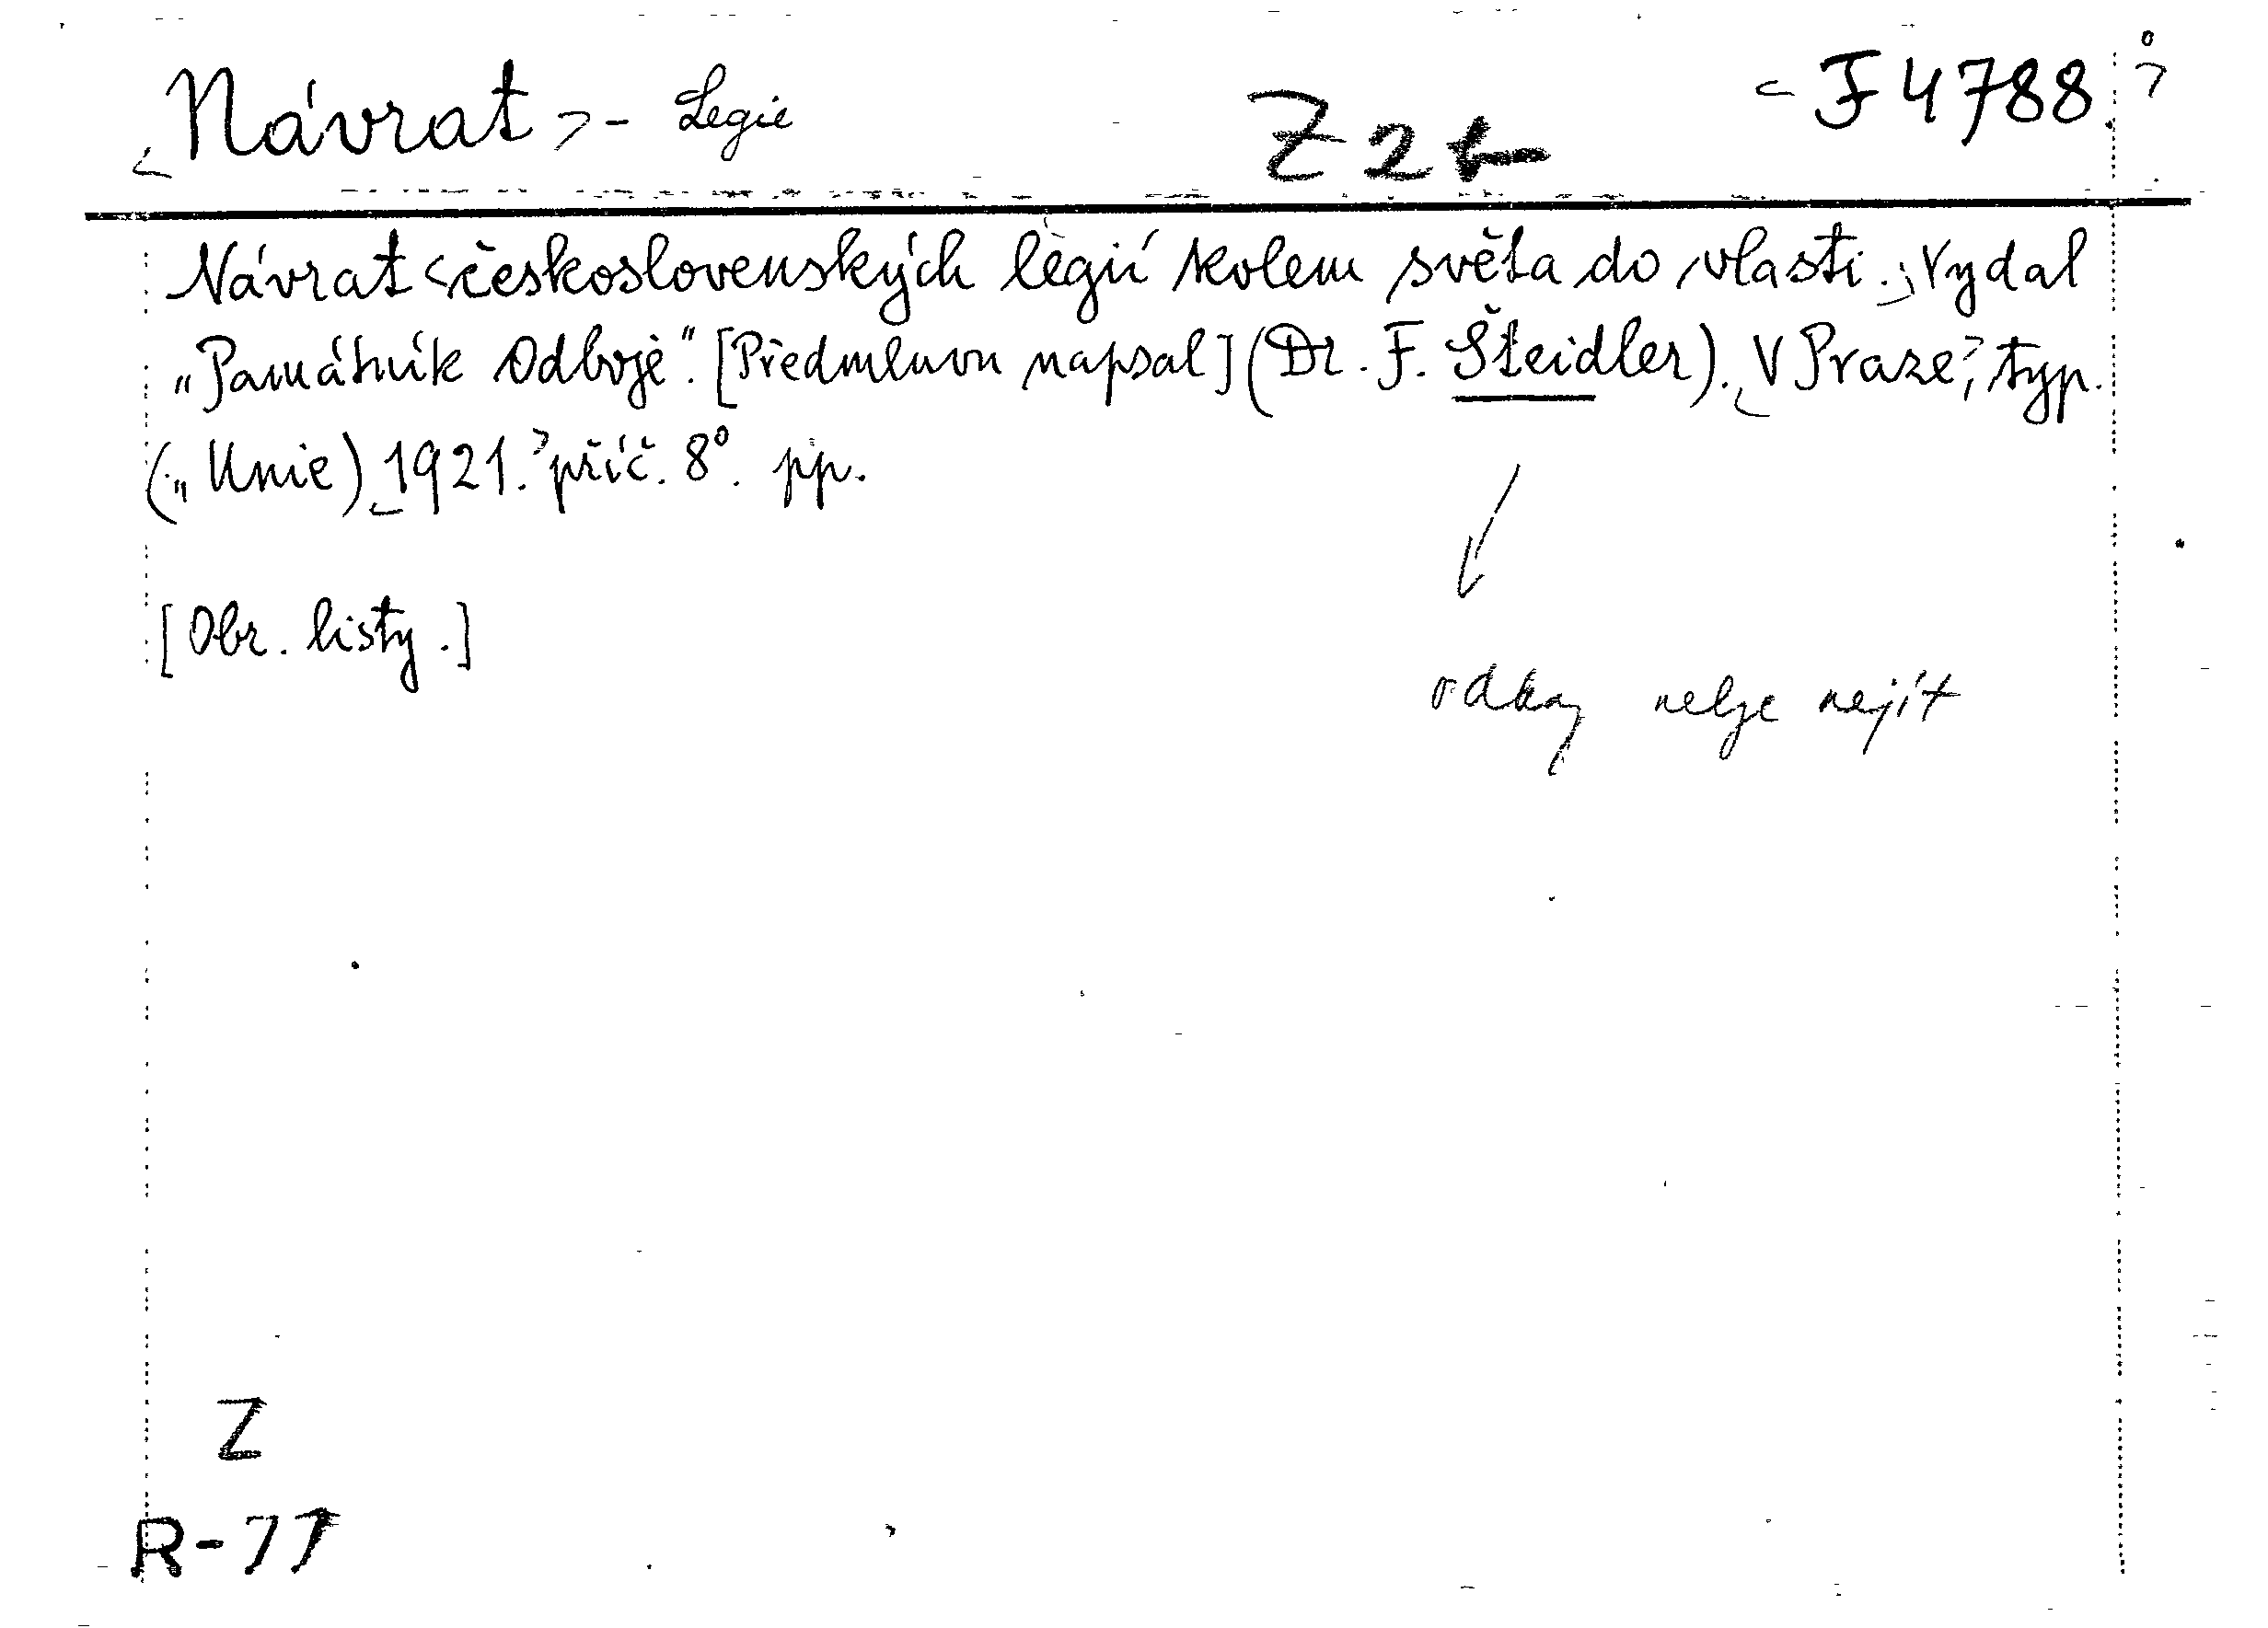 Návrat - Legie Z 2 F 4788
Návrat československých légií kolem světa do vlasti. Vydal
„Památník Odboje". [Předmluvou napsal] (Dr. F. Šteidler). V Praze, typ.
(„Unie) 1921. příč. 8°. pp.
[Obr. listy.]
odkaz nelze najít
Z
R-77